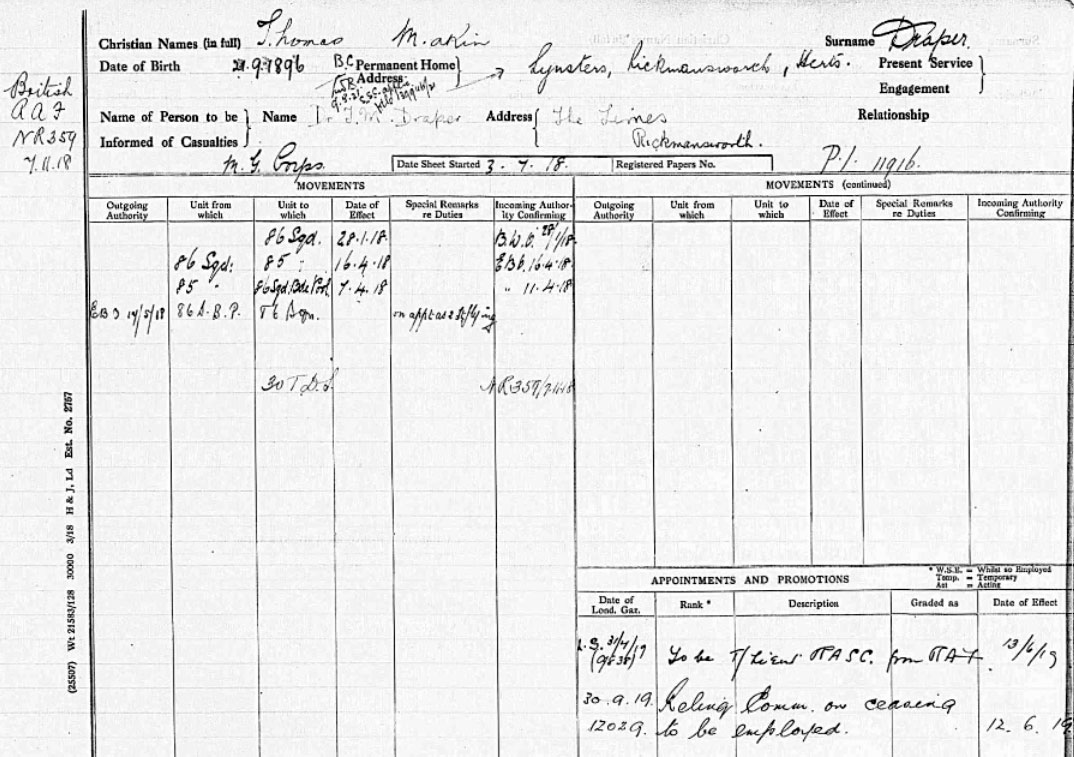 Christian Names (in full) Thomas Makin Surname Draper.
Date of Birth 21.9.1896 Permanent Home Address: Lynsters, Rickmansworth, Herts. Present Service Engagement
British
AAF
NR359
7.11.18
Name of Person to be Informed of Casualties Name Dr T.M. Draper Address The Limes Rickmansworth. Relationship
M. G. Corps. Date Sheet Started 3.7.18. Registered Papers No. P/. 11916.
MOVEMENTS
Outgoing Authority Unit from which Unit to which Date of Effect Special Remarks re Duties Incoming Authority Confirming
86 Sqd. 28.1.18 B.W.O. 28/1/18.
86 Sqd: 85 " 16.4.18 EBO. 16.4.18.
85 " 86 Sqd. Bde Pool 7.4.18 " 11.4.18
14/5/18
30 T.D.S. NR359/7.11.18
MOVEMENTS (continued)
Outgoing Authority Unit from which Unit to which Date of Effect Special Remarks re Duties Incoming Authority Confirming
APPOINTMENTS AND PROMOTIONS
* W.S.E. = Whilst so Employed
Temp. = Temporary
Act = Acting
Date of Lond. Gaz. Rank * Description Graded as Date of Effect
To be T/Lieut RASC. from RAF 13/6/19
30.9.19. Relinq Comm. on ceasing
12029. to be employed. 12.6.19
(25507) Wt 21583/128 30000 3/18 H & J, Ld Est. No. 2757